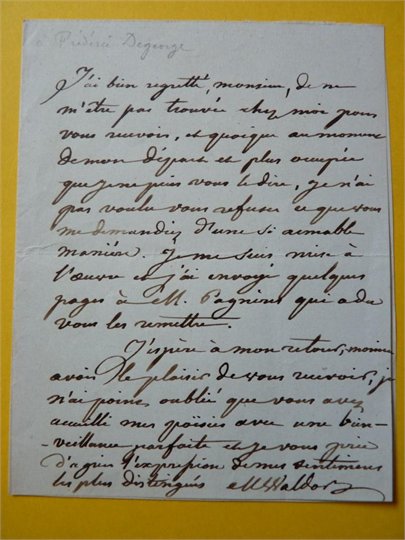 à Frédéric Degeorge
J'ai bien regretté, monsieur, de ne
m'être pas trouvée chez moi pour
vous recevoir, et quoique au moment
de mon départ et plus occupée
que je ne puis vous le dire, je n'ai
pas voulu vous refuser ce que vous
me demandiez d'une si aimable
manière. Je me suis mise à
l'œuvre et j'ai envoyé quelques
pages à M. Pagnerre qui a du
vous les remettre.
J'espère à mon retour, monsieur
avoir le plaisir de vous recevoir, je
n'ai point oublié que vous avez
accueilli mes poësies avec une bien-
veillance parfaite et je vous prie
d'agréer l'expression de mes sentimens
les plus distingués MWaldor